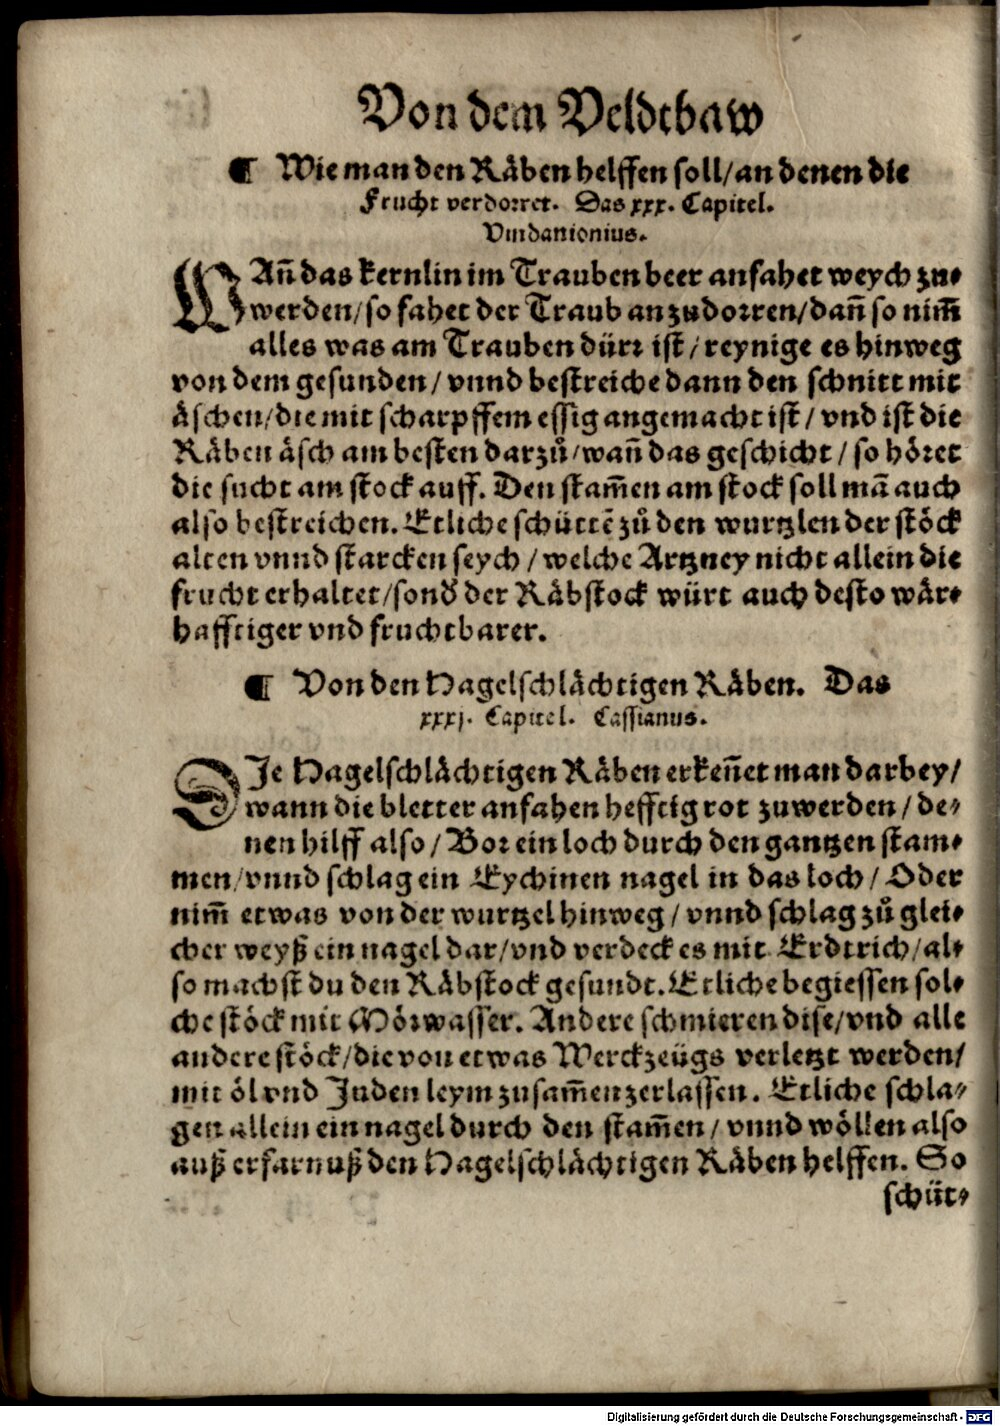 Von dem Veldtbaw
¶ Wie man den Räben helffen soll/an denen die
Frucht verdorret. Das xxx. Capitel.
Vindanionius.
WAñ das kernlin im Trauben beer anfahet weych zu⸗
werden/so fahet der Traub an zudorren/dañ so nim̃
alles was am Trauben dürr ist/reynige es hinweg
von dem gesunden/vnnd bestreiche dann den schnitt mit
äschen/die mit scharpffem essig angemacht ist/vnd ist die
Räben äsch am besten darzů/wañ das geschicht/so höret
die sucht am stock auff. Den stam̃en am stock soll mã auch
also bestreichen. Etliche schüttẽ zů den wurtzlen der stöck
alten vnnd starcken seych/welche Artzney nicht allein die
frucht erhaltet/sonď der Räbstock würt auch desto wär⸗
hafftiger vnd fruchtbarer.
¶ Von den Nagelschlächtigen Räben. Das
xxxj. Capitel. Cassianus.
DIe Nagelschlächtigen Räben erkeñet man darbey/
wann die bletter anfahen hefftig rot zuwerden/de⸗
nen hilff also/Bor ein loch durch den gantzen stam⸗
men/vnnd schlag ein Eychinen nagel in das loch/Oder
nim̃ etwas von der wurtzel hinweg/vnnd schlag zů glei⸗
cher weyß ein nagel dar/vnd verdeck es mit Erdtrich/al⸗
so machst du den Räbstock gesundt. Etliche begiessen sol⸗
che stöck mit Mörwasser. Andere schmieren dise/vnd alle
andere stöck/die von etwas Werckzeügs verletzt werden/
mit öl vnd Juden leym zusam̃en zerlassen. Etliche schla⸗
gen allein ein nagel durch den stam̃en/vnnd wöllen also
auß erfarnuß den Nagelschlächtigen Räben helffen. So
schüt⸗
Digitalisierung gefördert durch die Deutsche Forschungsgemeinschaft - DFG